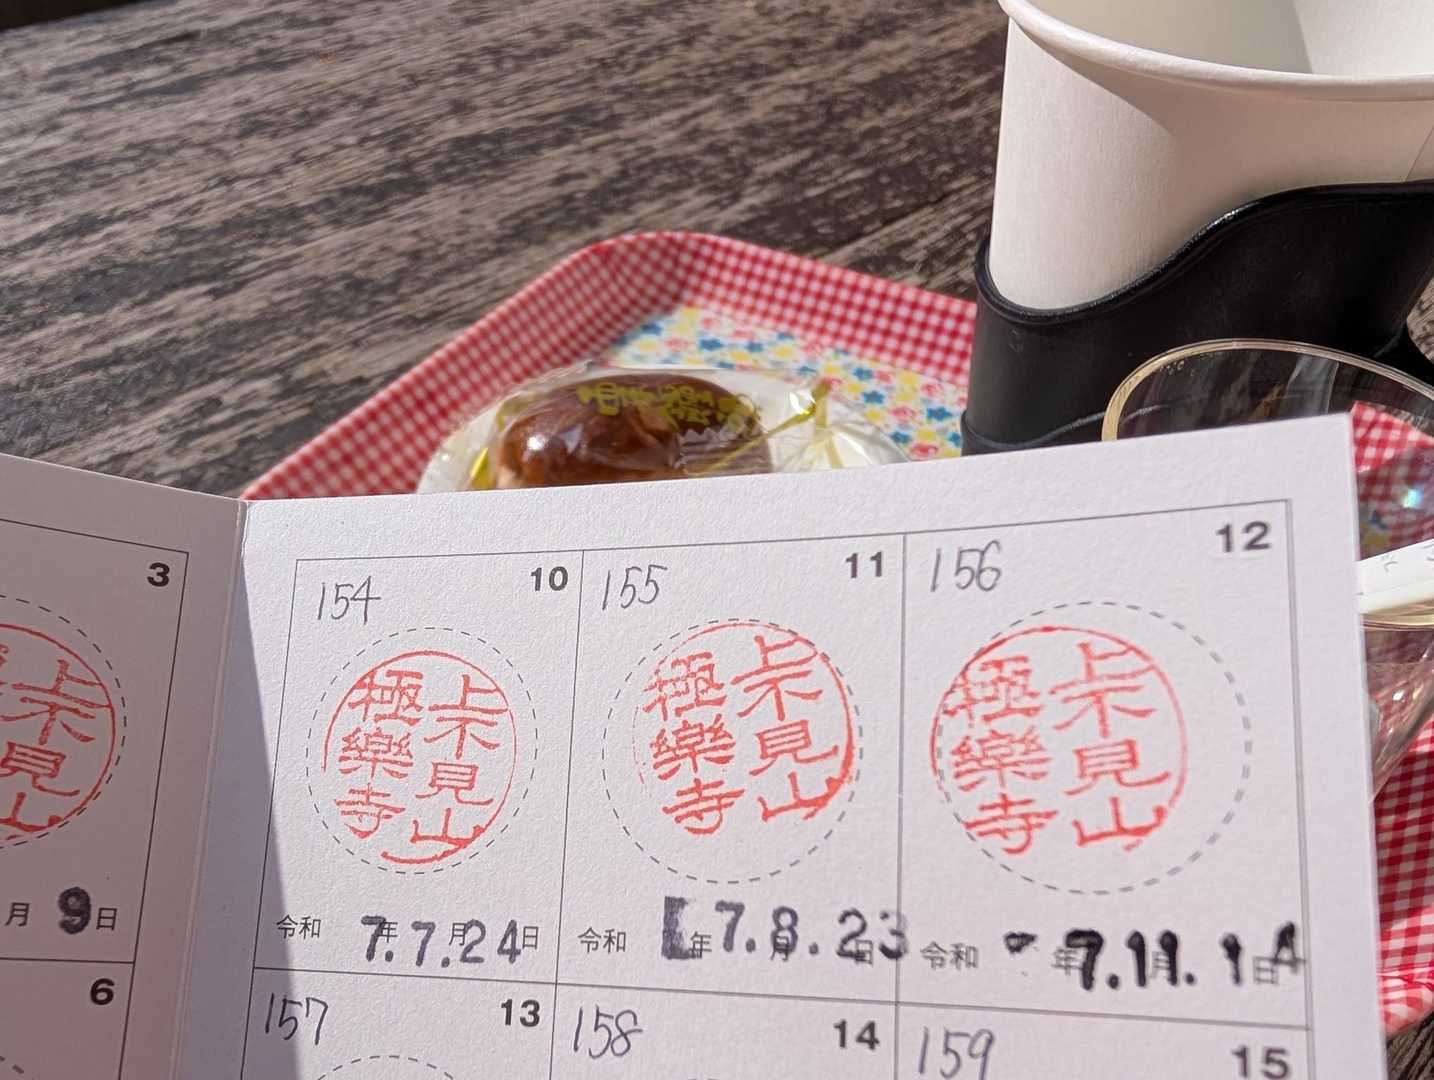 3
上不見山
月 9 日
6
154 10
上不見山
極樂寺
令和 7.年7.月24日
155 11
上不見山
極樂寺
令和 年7.8月.23日
156 12
上不見山
極樂寺
令和 年7.11月.1日4
157 13
158 14
159 15